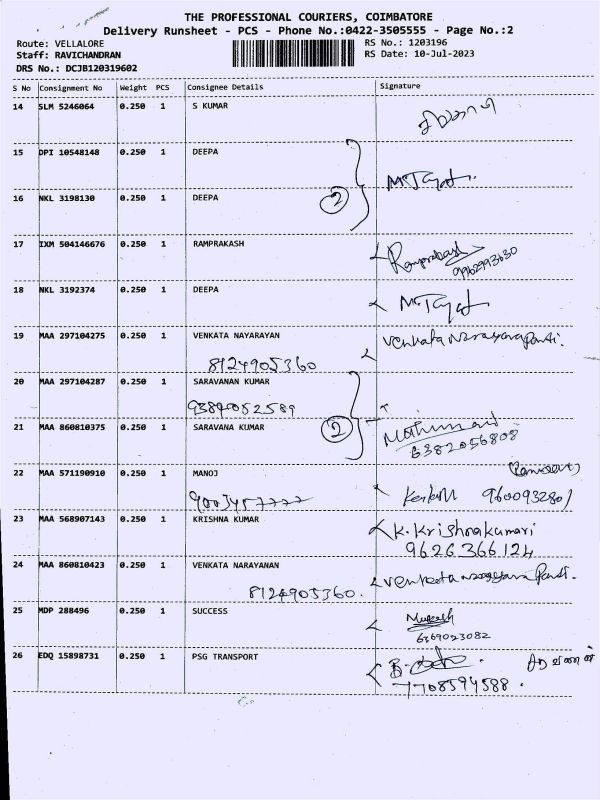 THE PROFESSIONAL COURIERS, COIMBATORE
Delivery Runsheet - PCS - Phone No.:0422-3505555 - Page No.:2
Route: VELLALORE
RS No.: 1203196
Staff: RAVICHANDRAN
RS Date: 10-Jul-2023
DRS No.: DCJB120319602
S No Consignment No Weight PCS Consignee Details Signature
14 SLM 5246064 0.250 1 S KUMAR
15 DPI 10548148 0.250 1 DEEPA
16 NKL 3198130 0.250 1 DEEPA 2
17 IXM 504146676 0.250 1 RAMPRAKASH Ramprakash
9962993630
18 NKL 3192374 0.250 1 DEEPA
19 MAA 297104275 0.250 1 VENKATA NAYARAYAN Venkata Narayana
8124905360
20 MAA 297104287 0.250 1 SARAVANAN KUMAR
9384052589
21 MAA 860810375 0.250 1 SARAVANA KUMAR 2
6382056808
22 MAA 571190910 0.250 1 MANOJ
9003457777 9600932801
23 MAA 568907143 0.250 1 KRISHNA KUMAR K. Krishnakumari
9626366124
24 MAA 860810423 0.250 1 VENKATA NARAYANAN
8124905360.
25 MDP 288496 0.250 1 SUCCESS Mukesh
6369023082
26 EDQ 15898731 0.250 1 PSG TRANSPORT சரவணன்
7708594588.